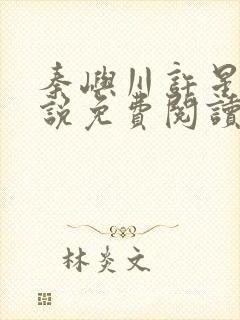 秦嶼川許是
說免費閱讀
林炎文